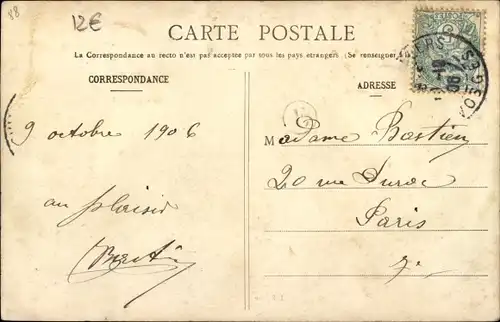 88
12€
CARTE POSTALE
La Correspondance au recto n'est pas acceptée par tous les pays étrangers (Se renseigner à
CORRESPONDANCE
ADRESSE
9 octobre 1906
au plaisir
Madame Bastien
20 rue Duroc
Paris
7e
VOSGES
06